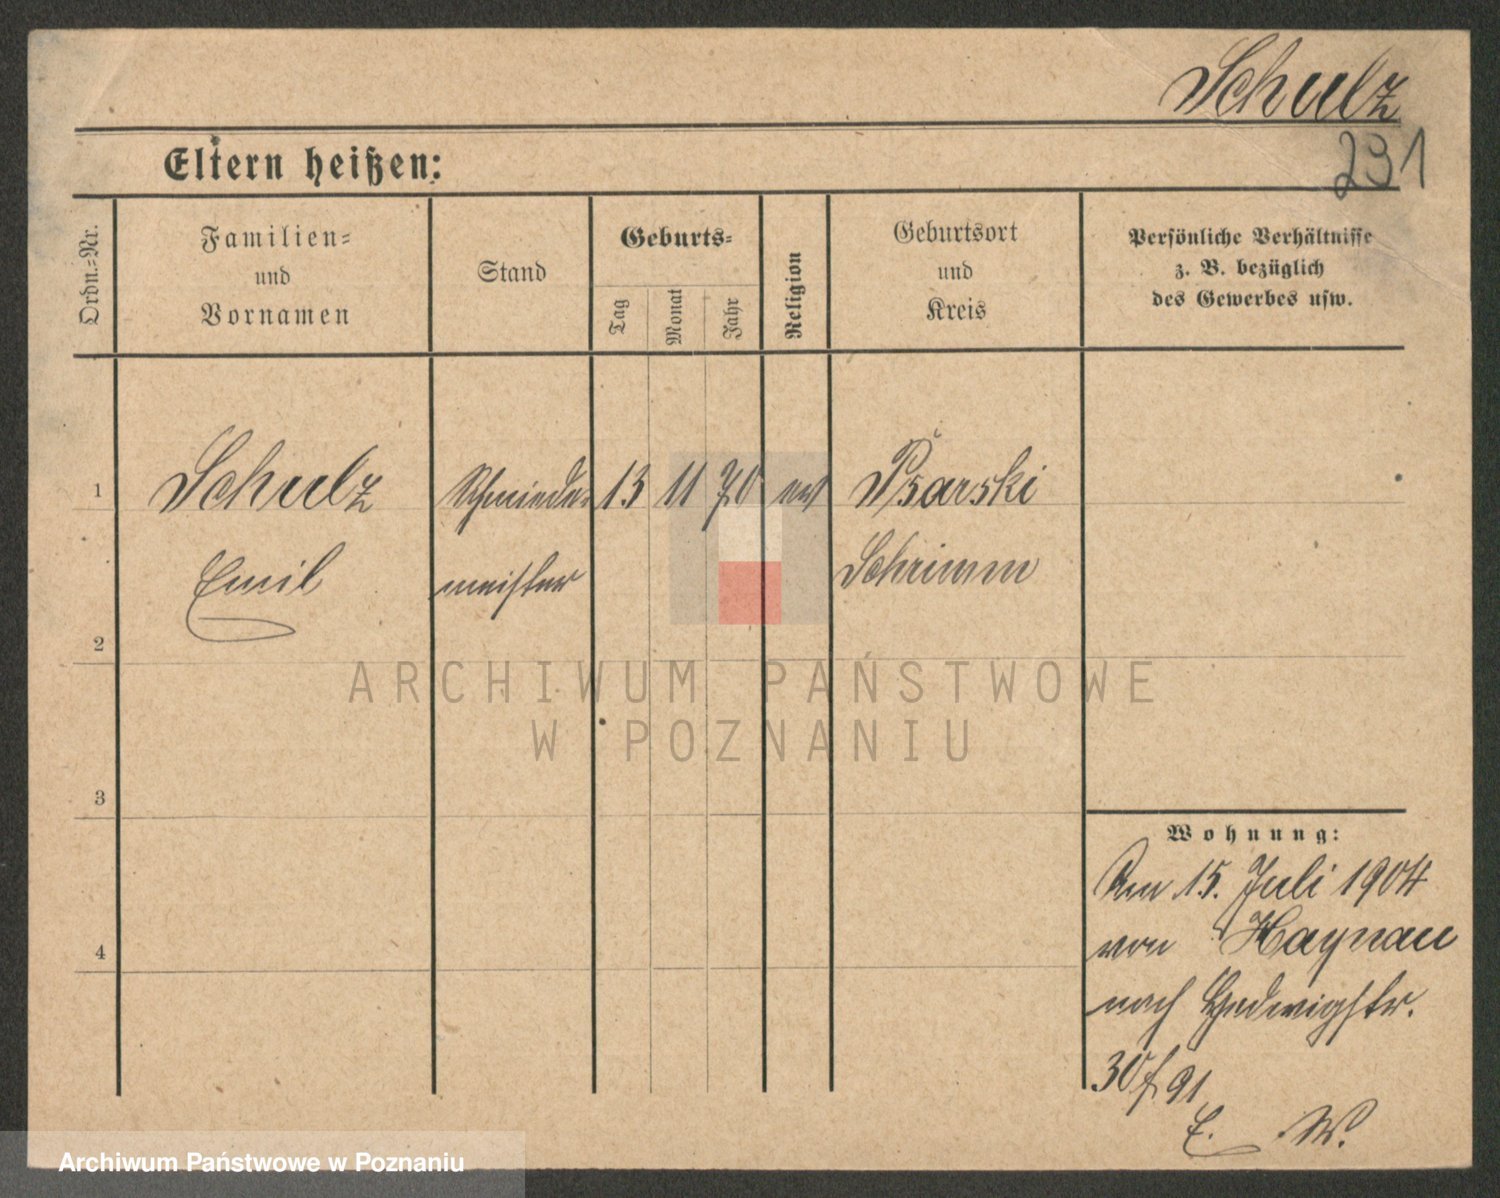 Schulz
231
Eltern heißen:
Ordn.-Nr.
Familien-
und
Vornamen
Stand
Geburts-
Tag
Monat
Jahr
Religion
Geburtsort
und
Kreis
Persönliche Verhältnisse
z. B. bezüglich
des Gewerbes usw.
1 Schulz Schmiede- 13 11 70 ev Psarski
Emil meister Schrimm
2
3
4
ARCHIWUM PAŃSTWOWE
W POZNANIU
Wohnung:
Am 15. Juli 1904
von Haynau
nach Hedwigstr.
30 f 91
E. W.
Archiwum Państwowe w Poznaniu